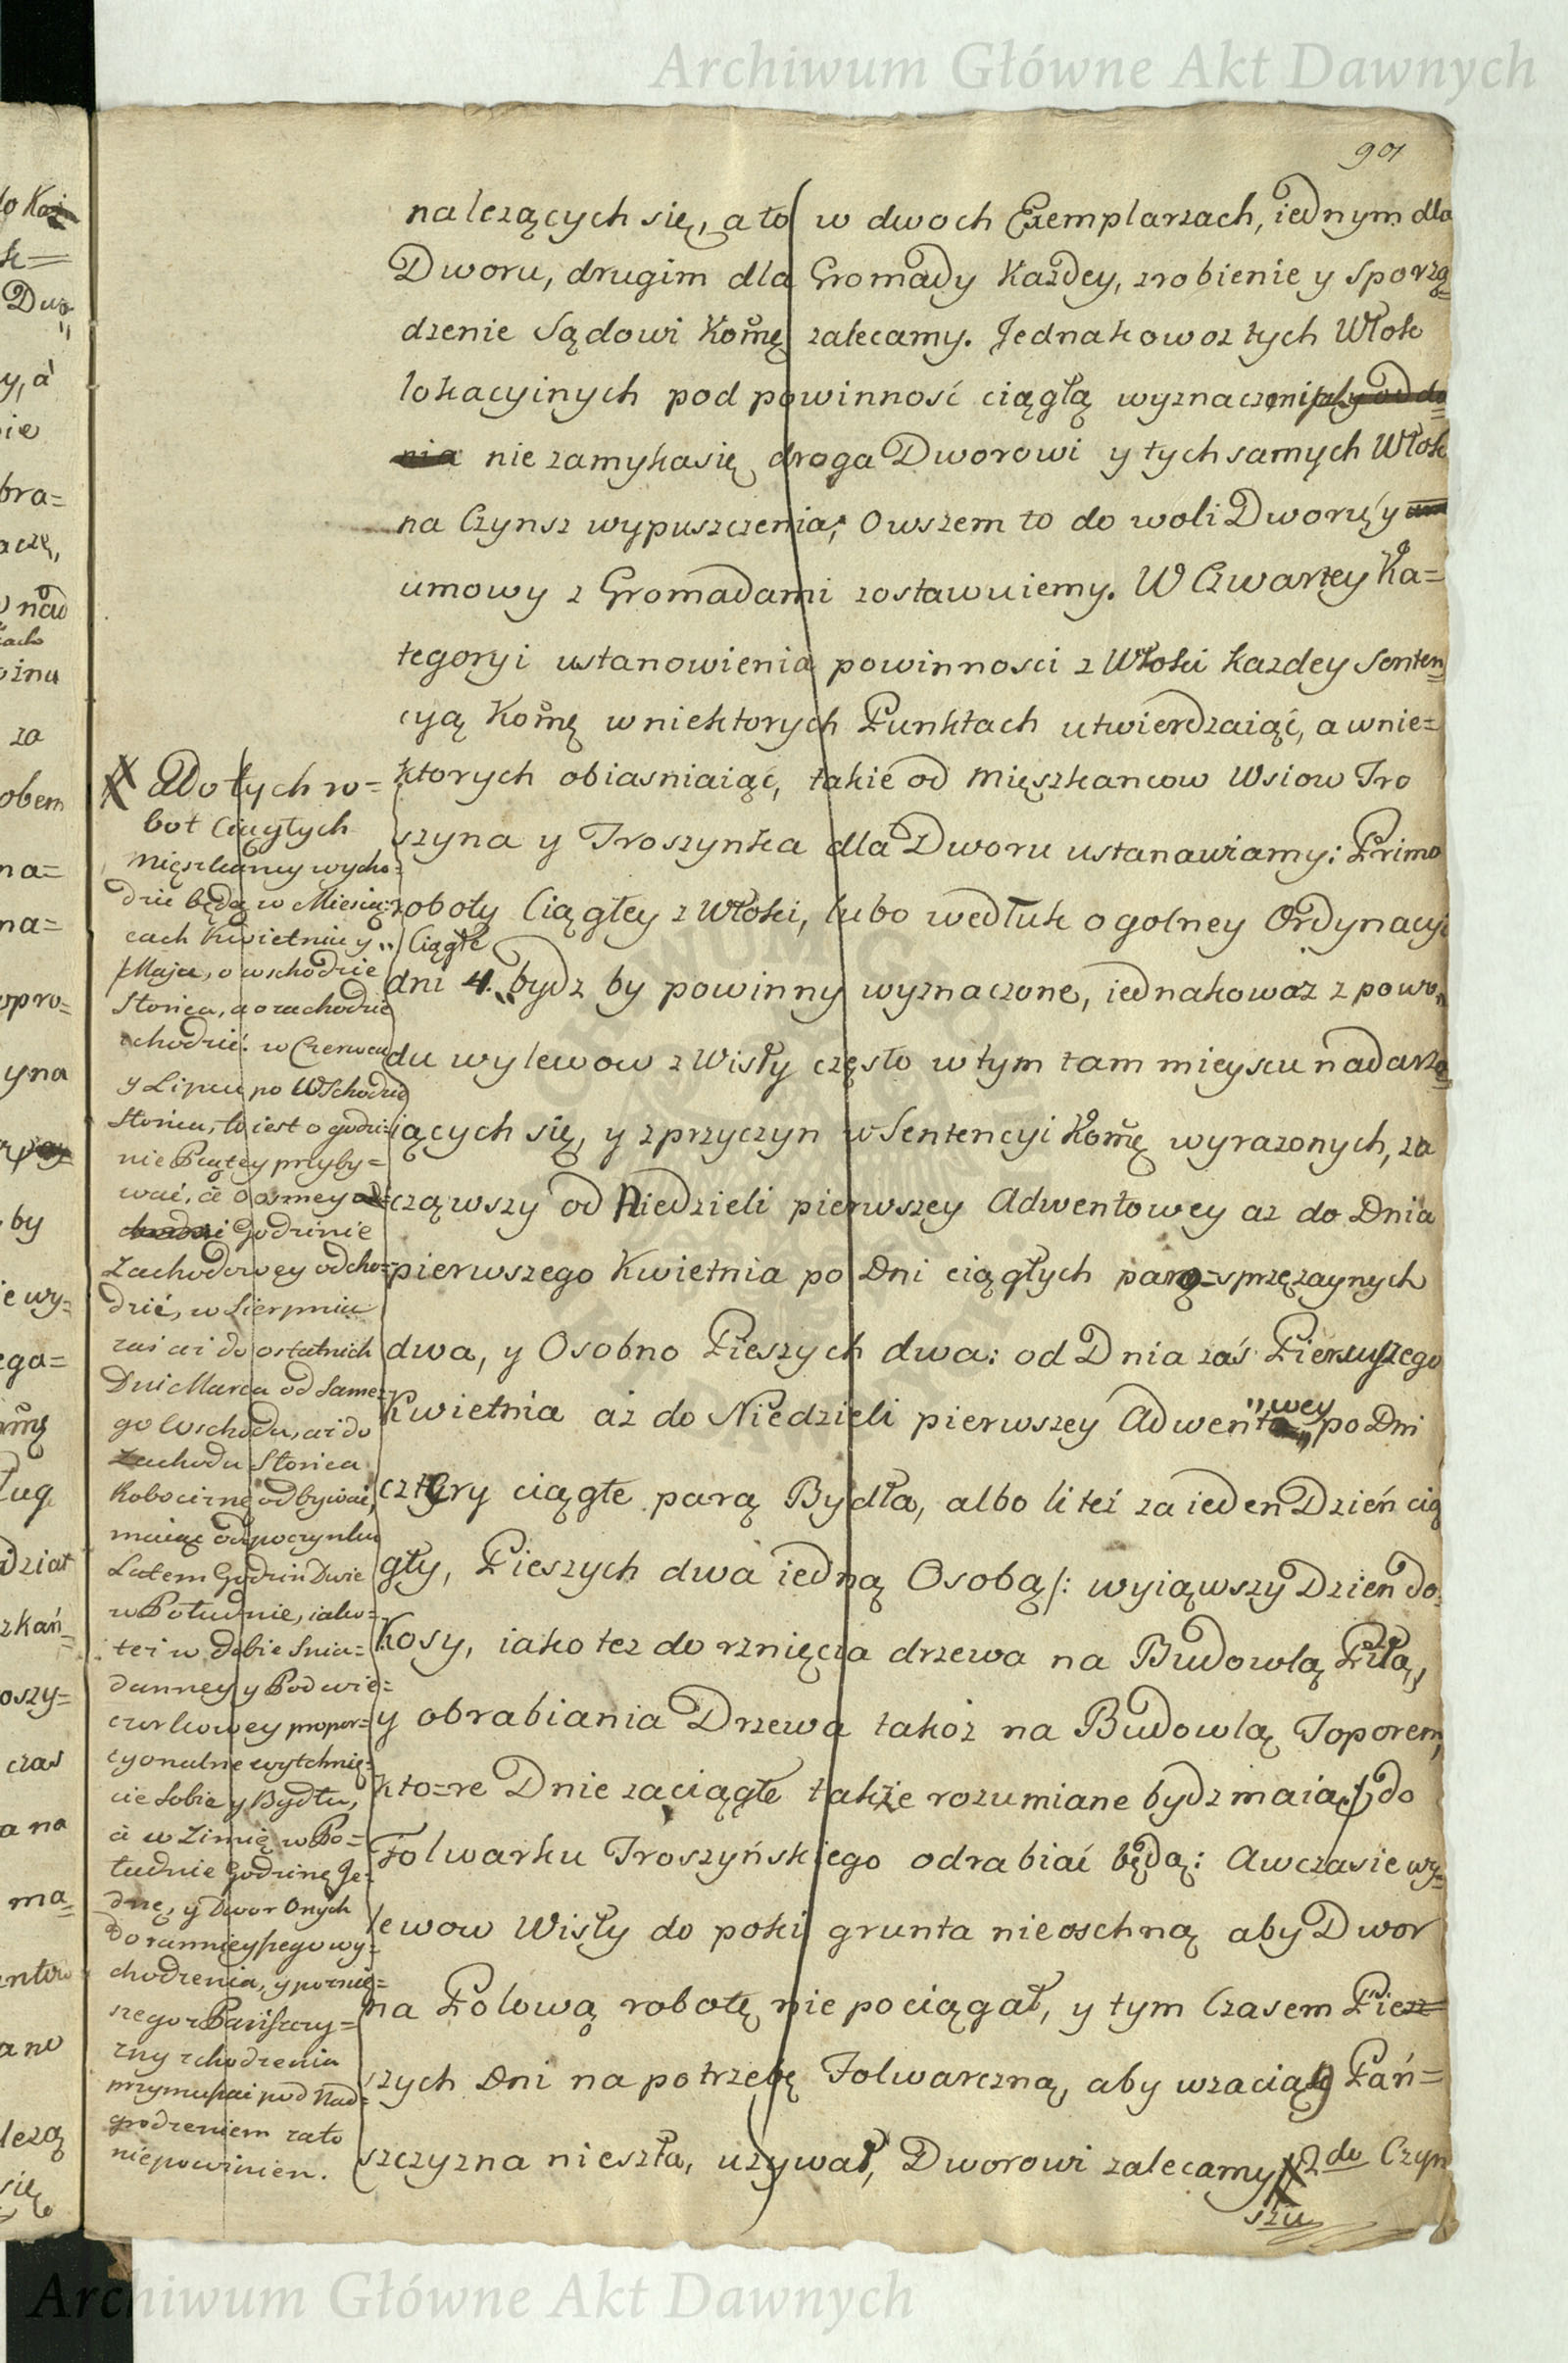 Archiwum Główne Akt Dawnych
należących się, a to w dwoch Exemplarzach, iednym dla
Dworu, drugim dla Gromady Każdey, zrobienie y sporzą=
dzenie Sądowi Kom̃ę zalecamy. Jednakowoz tych Włok
lokacyinych pod powinność ciągłą wyznaczeni
nie zamyka się droga Dworowi y tych samych Włok
na Czynsz wypuszczenia; Owszem to do woli Dworu, y
umowy z Gromadami zostawuiemy. W Czwartey Ka=
tegoryi ustanowienia powinnosci z Włoki kazdey Senten=
cyą Kom̃ę w niektorych Punktach utwierdzaiąc, a w nie=
ktorych obiasniaiąc, takie od Mięszkancow Wsiow Tro
szyna y Troszynka dla Dworu ustanawiamy: Primo
roboty Ciągłey z Włoki, lubo wedłuk ogolney Ordynacyi
Ciągłe
dni 4. bydz by powinny wyznaczone, iednakowoż z powo„
du wylewow z Wisły często w tym tam mieyscu nadarza=
iących się, y z przyczyn w Sentencyi Kom̃ę wyrazonych, za
cząwszy od Niedzieli pierwszey Adwentowey az do Dnia
pierwszego Kwietnia po Dni ciągłych parą=sprzężaynych
dwa, y Osobno Pieszych dwa: od Dnia zaś Pierwszego
Kwietnia aż do Niedzieli pierwszey Adwento„wey po Dni
cztery ciągłe parą Bydła, albo li też za ieden Dzień cią
gły, Pieszych dwa iedną Osobą/: wyiąwszy Dzień do
Kosy, iako tez do rznięcia drzewa na Budowlą Piłą,
y obrabiania Drzewa takoż na Budowlą Toporem,
kto=re Dnie za ciągłe także rozumiane bydz maią:/ do
Folwarku Troszyńskiego odrabiać będą: A w czasie wy=
lewow Wisły do poki grunta nieoschną aby Dwor
na Polową robotę nie pociągał, y tym Czasem Pie=
szych Dni na potrzebę Folwarczną, aby w zaciąg Pań=
szczyzna nieszła, używał, Dworowi zalecamy X 2do Czyn
szu
X Do tych ro=
bot Ciągłych
Mięszkańcy wycho=
dzić będą w Miesią=
cach Kwietniu y
Maju, o wschodzie
Słońca, a o zachodzie
schodzić: w Czerwcu
y Lipcu po Wschodzie
Słońca, to iest o godzi=
nie Piątey przyby=
wać, a o osmey
Godzinie
Zachodowey odcho=
dzić, w Sierpniu
zaś aż do ostatnich
Dni Marca od same=
go wschodu, aż do
Zachodu Słońca
Robociznę odbywać,
maiąc odpoczynku
Latem Godzin Dwie
w Południe, iako=
też w dobie Snia=
danney y Podwie=
czorkowey propor=
cyonalne wytchnię=
cie sobie y Bydłu,
a w Zimię w Po=
łudnie Godzinę Je=
dnę, y Dwor Onych
do rannieyszego wy=
chodzenia, y pozniey=
szego z Pańszczy=
zny schodzenia
przymuszać pod Nad=
grodzeniem za to
niepowinien.
Archiwum Główne Akt Dawnych